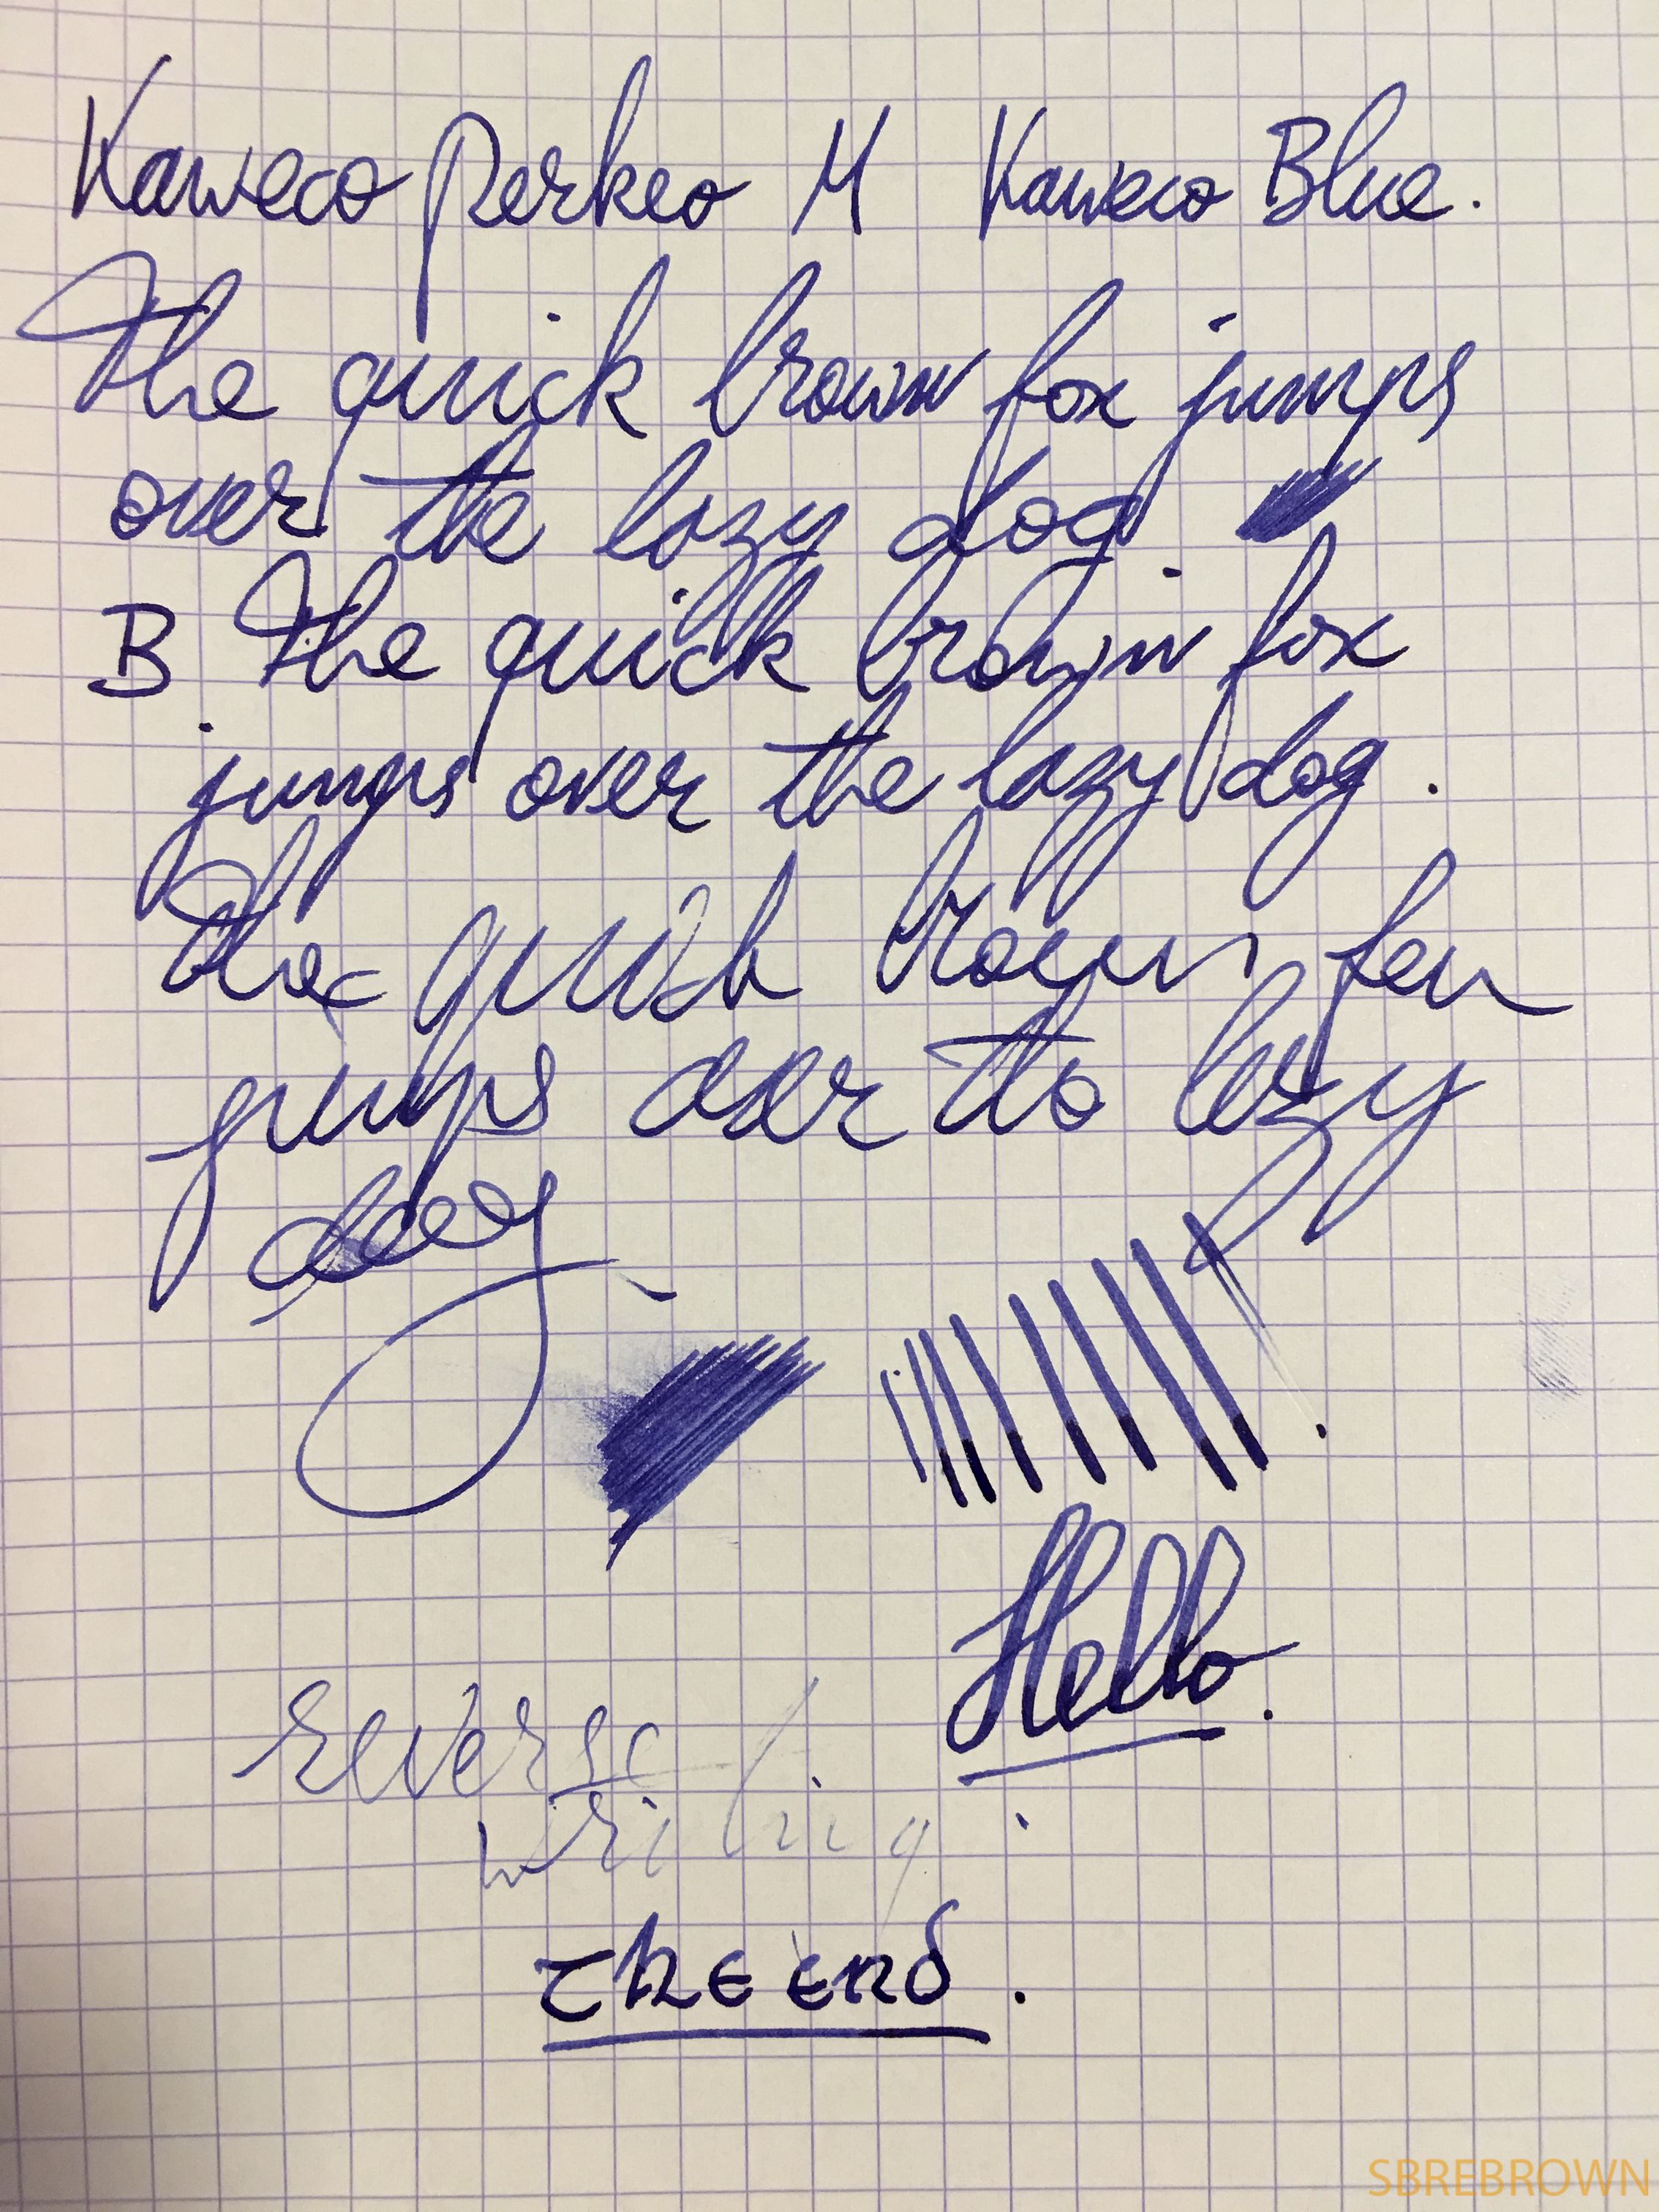 Kaweco Perkeo M Kaweco Blue.
The quick brown fox jumps
over the lazy dog
B The quick brown fox
jumps over the lazy dog.
The quick brown fox
jumps over the lazy
dog.
Hello.
reverse
writing.
the end.
SBREBROWN